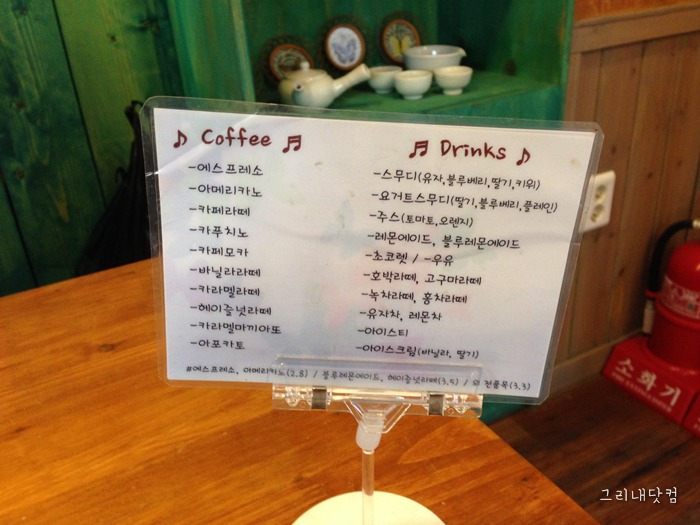 ♪ Coffee ♬
-에스프레소
-아메리카노
-카페라떼
-카푸치노
-카페모카
-바닐라라떼
-카라멜라떼
-헤이즐넛라떼
-카라멜마끼아또
-아포카토
♬ Drinks ♪
-스무디(유자,블루베리,딸기,키위)
-요거트스무디(딸기,블루베리,플레인)
-주스(토마토,오렌지)
-레몬에이드, 블루레몬에이드
-초코렛 / -우유
-호박라떼, 고구마라떼
-녹차라떼, 홍차라떼
-유자차, 레몬차
-아이스티
-아이스크림(바닐라, 딸기)
#에스프레소, 아메리카노(2.8) / 블루레몬에이드, 헤이즐넛라떼(3.5) / 외 전품목(3.3)
소화기
그리내닷컴